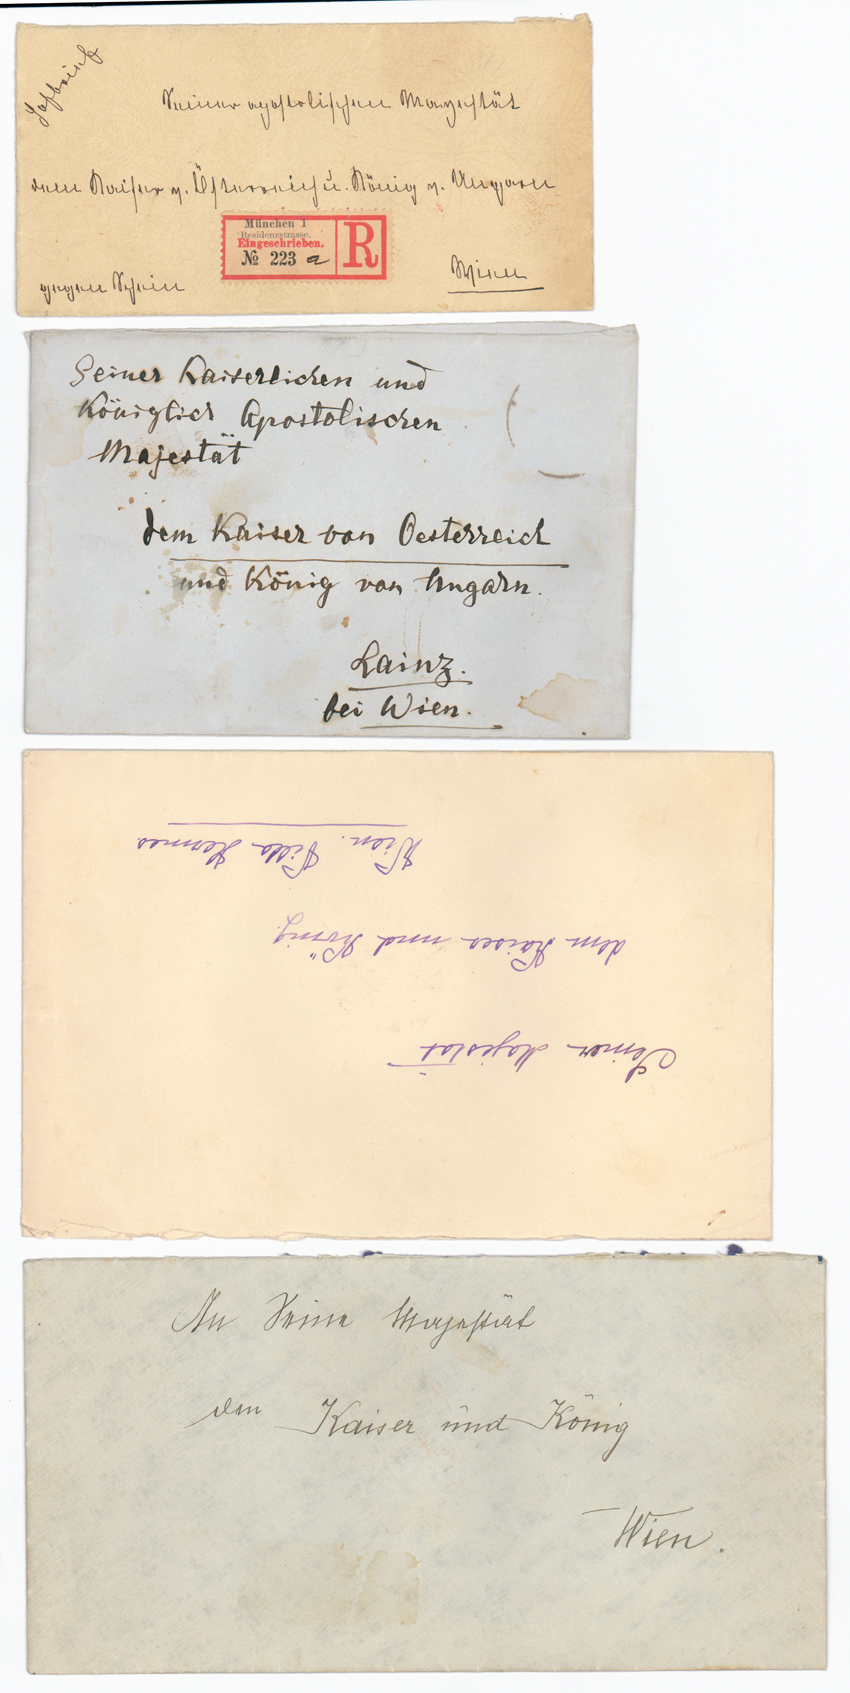 Hofbrief
Seiner apostolischen Mayestät
dem Kaiser v. Österreich u. König v. Ungarn
München 1
Residenzstrasse.
Eingeschrieben.
№ 223 a
R
Wien
gegen Schein
Seiner Kaiserlichen und
Königlich Apostolischen
Majestät
dem Kaiser von Oesterreich
und König von Ungarn.
Lainz.
bei Wien.
Seiner Majestät
dem Kaiser und König.
Wien. Villa Hermes
An Seine Majestät
den Kaiser und König
Wien.